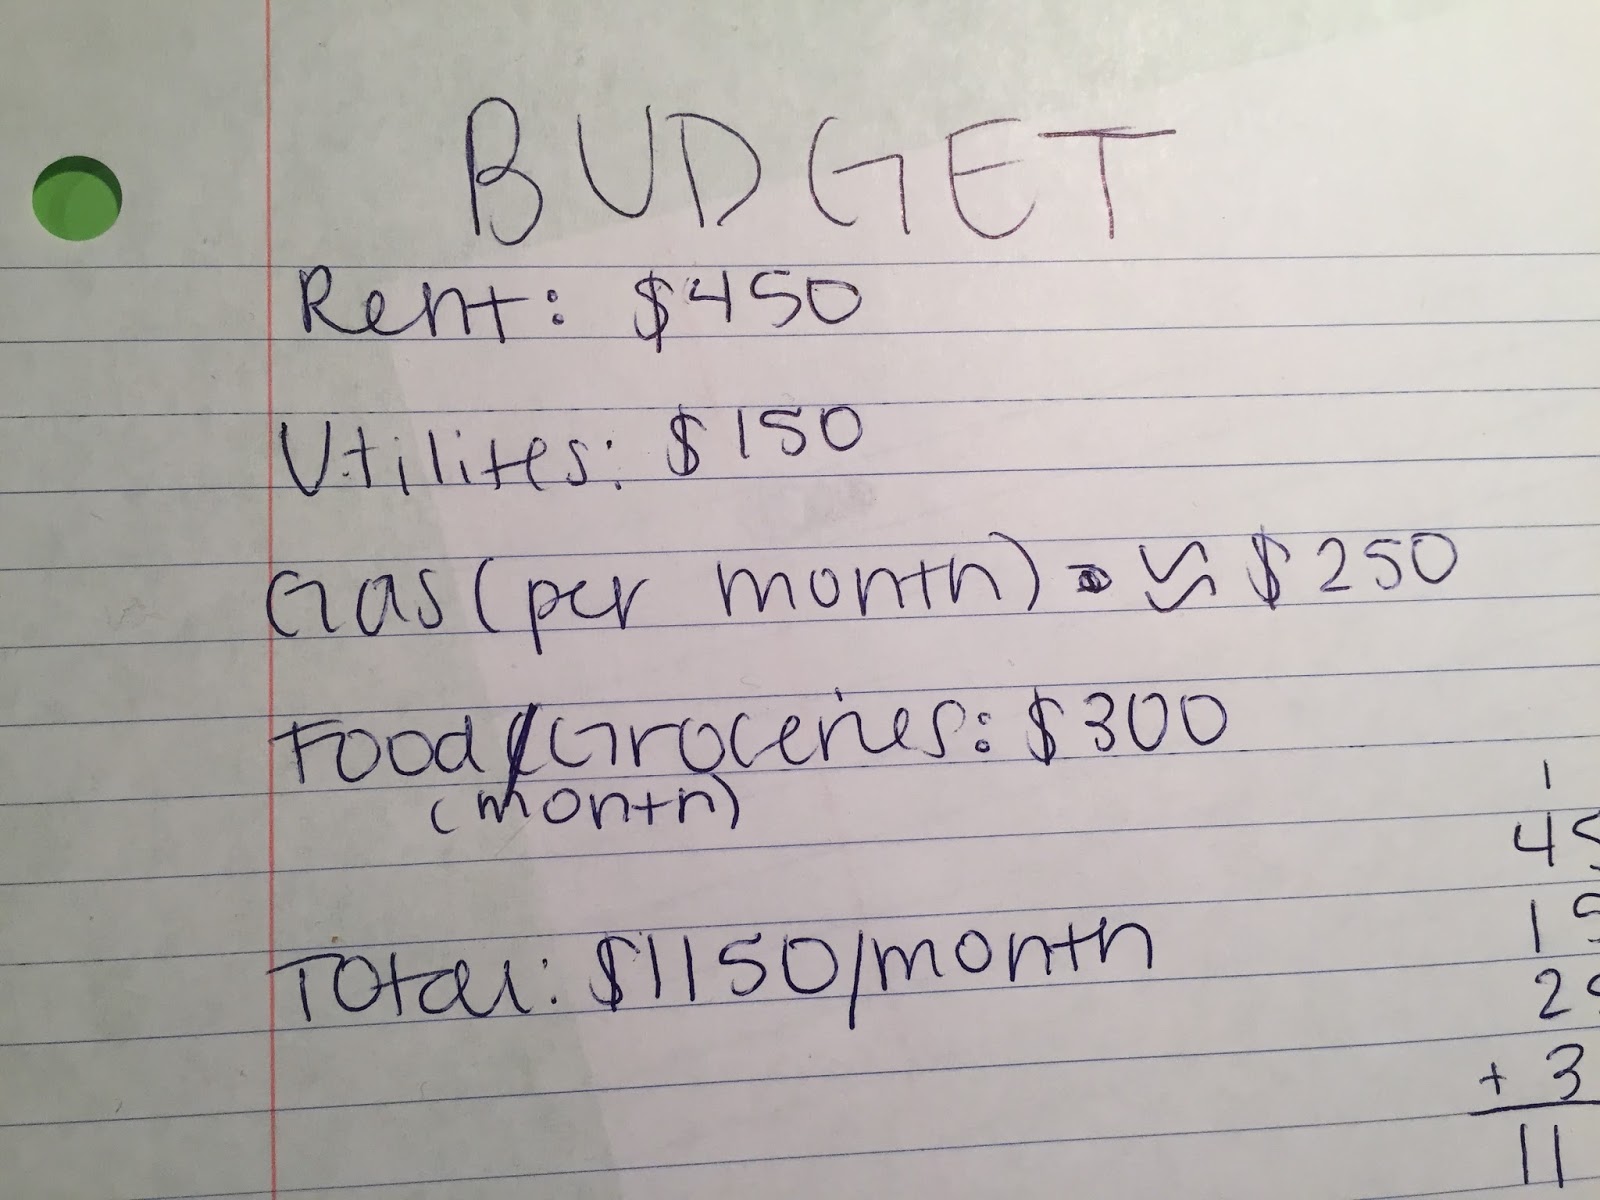 BUDGET
Rent: $450
Utilites: $150
Gas (per month) ≈ $250
Food/Groceries: $300
(month)
Total: $1150/month
1
45
15
25
+ 3
11